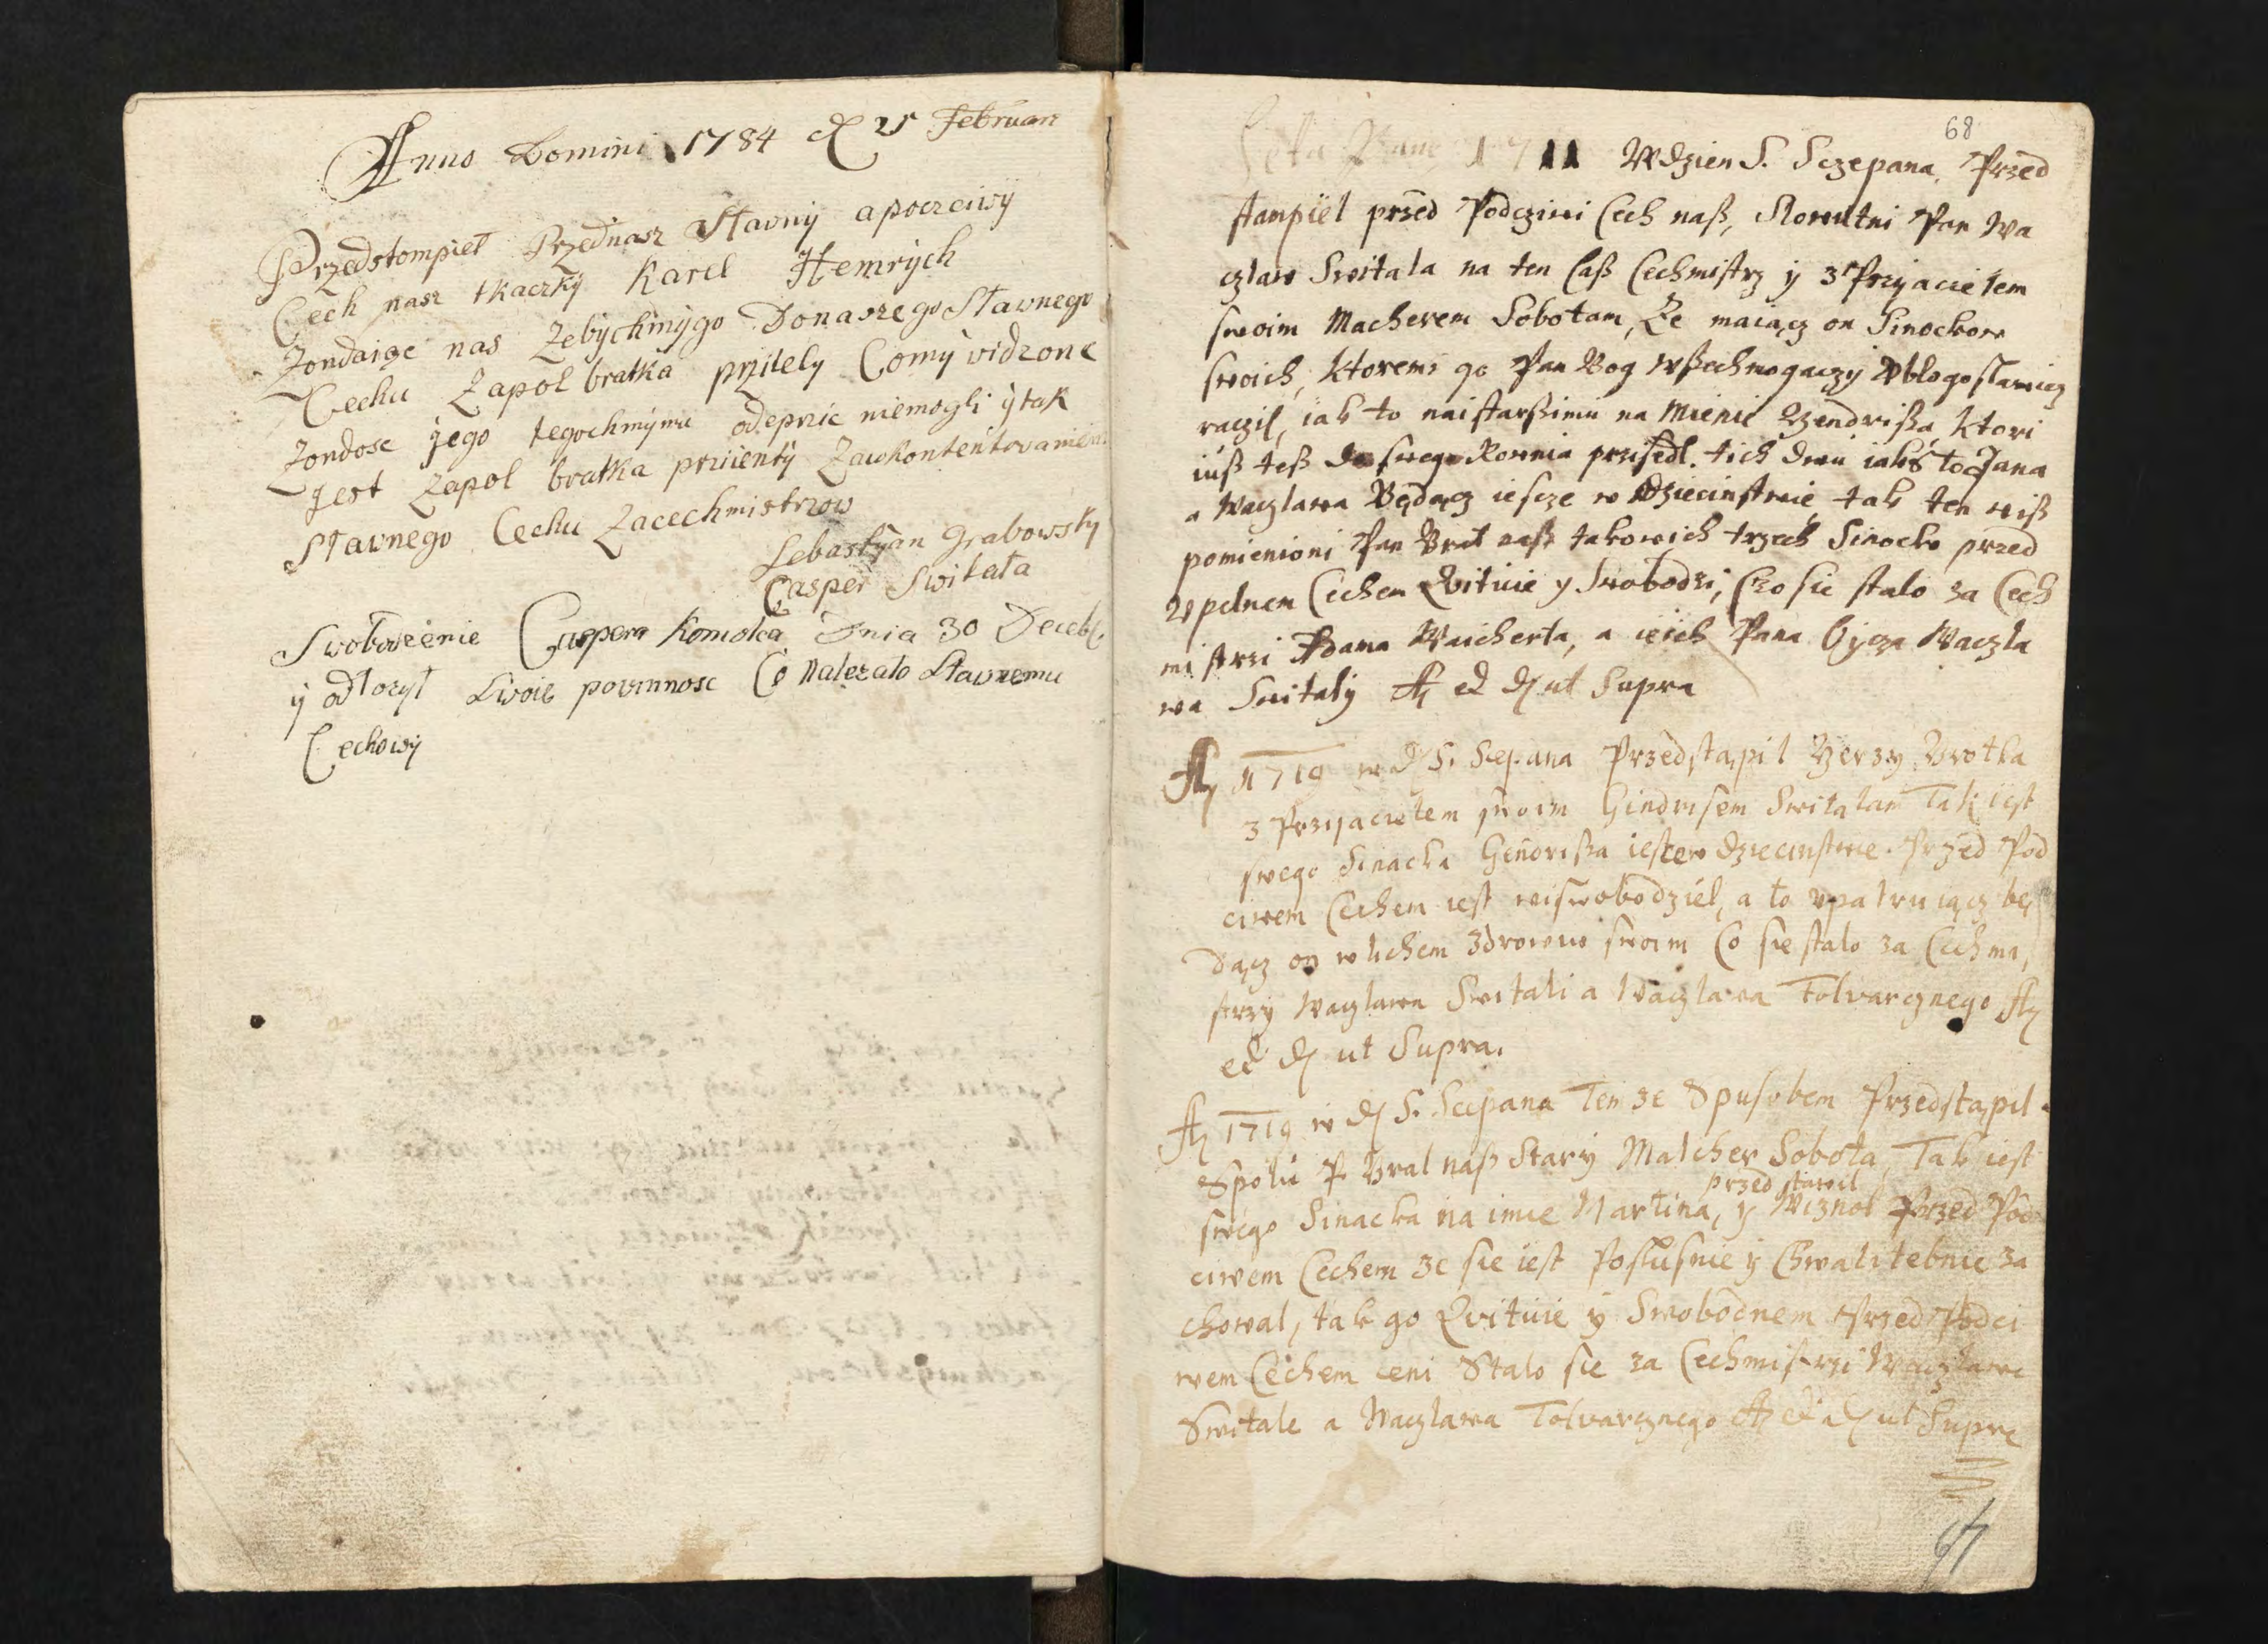 Anno Domini 1784 d 21 Februari
Przedstompieł Przednasz Sławny apoczciwÿ
Cech nasz tkaczkÿ Karel Hemrÿch
Zondaige nas Zebÿchmÿgo Donaszego Sławnego
Cechu Zapol bratka przÿiely Comÿ widzonc
Zondosc jego tegochmÿmu odepric niemogli ÿtak
jest Zapol bratka przÿientÿ Zawkontentowaniem
Sławnego Cechu Zacechmistrzow
Sebastÿan Grabowsky
Casper Switała
Swobozeenie Caspera Komolca Dnia 30 Decebr
ÿ odłozÿł Swoie powinnosc Co Nalezało Sławnemu
Cechowÿ
68
Leta Pane 1711 W dzien S. Sczepana, Przed
stampiel przed Podcziwi Cech naß, Slowutni Pan Wa
czlaw Switala na ten Caß Cechmistrz ÿ z Przyacielem
swoim Macherem Sobotam, Ze maiącz on Sinockow
swoich, Ktoremi go Pan Bog wßechmogaczÿ Vblogoslawicz
raczil, iak to naistarßimu na Mienie Yendrißa Ktori
iuß teß do swego Rownia przisedl. tich dwu iakβ to Jana
a Waczlawa Będącz iescze w Dziecinstwie, tak ten wiß
pomienioni Pan Brat naß takowich trzech Sinocko przed
vpelnem Cechem Qvituie y Swobodzi, Czo sie stalo za Cech
mistrzi Adama Waicherta, a ieich Pana Oÿcza Waczla
wa Switalÿ A ed d ut Supra
A 1719 w d S. Scepana Przedstąpil Yerzy Brotka
z Przyacielem swoim Gindrisem Switalam Tak iest
swego Sinacka Gendrißa iescew dziecinstwie. Przed Pod
ciwem Cechem iest wiswobodziel, a to vpatruiącz bę
dącz on wlichem Zdrowiu swoim Co sie stalo za Cechmi,
strzy Waczlawa Switali a Waczlawa Tolvarcznego A
ed d ut Supra.
A 1719 w d S. Scepana Tem ze Spusobem Przedstąpil
Spolu P. Brat naß Starÿ Malcher Sobota, Tak iest
przed stawil
swego Sinacka na imie Martina, y Wiznal Przed Pod
ciwem Cechem ze sie iest Poslusnie ÿ Chwalitebnie za
chowal, tak go Qvituie ÿ Swobodnem Przed Podci
wem Cechem ceni Stalo sie za Cechmistrzi Waczlawa
Switale a Waczlawa Tolvarcznego A ed d ut Supra